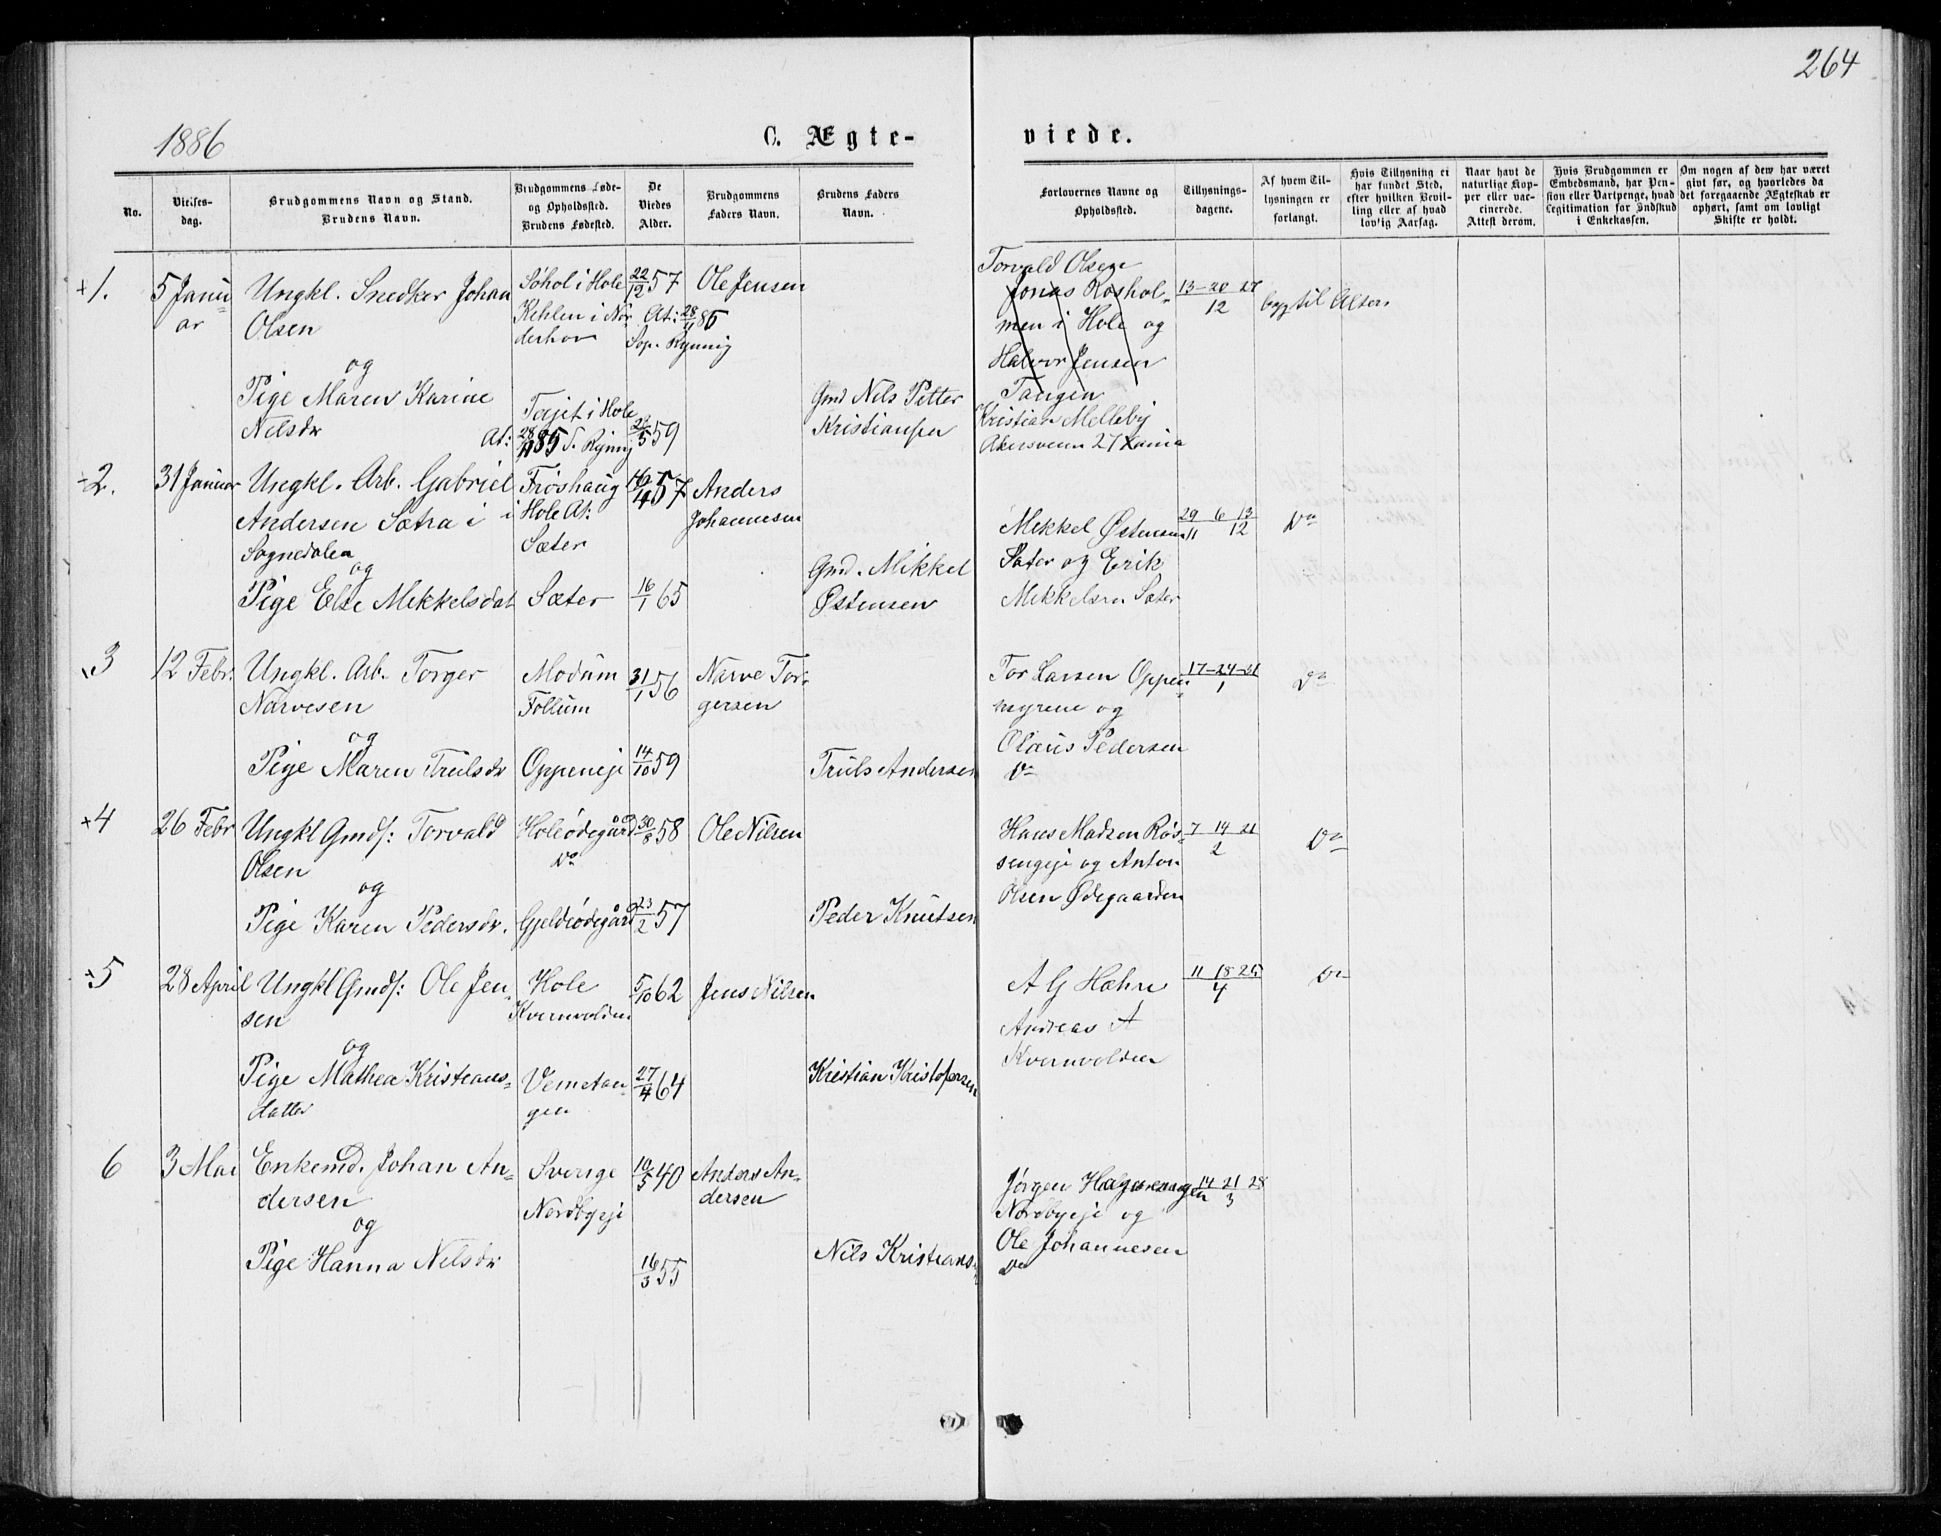 264
1886
C. Ægte-
viede.
No.
Vielses-
dag.
Brudgommens Navn og Stand.
Brudens Navn.
Brudgommens Føde-
og Opholdssted.
Brudens Fødested.
De
Viedes
Alder.
Brudgommens
Faders Navn.
Brudens Faders
Navn.
Forlovernes Navne og
Opholdssted.
Tillysnings-
dagene.
Af hvem Til-
lysningen er
forlangt.
Hvis Tillysning ei
har fundet Sted,
efter hvilken Bevil-
ling eller af hvad
lovlig Aarsag.
Naar havt de
naturlige Kop-
per eller vac-
cinerede.
Attest derom.
Hvis Brudgommen er
Embedsmand, har Pen-
sion eller Vartpenge, hvad
Legitimation for Indskud
i Enkekassen.
Om nogen af dem har været
givt før, og hvorledes da
det foregaaende Ægteskab er
ophørt, samt om lovligt
Skifte er holdt.
+1.
5 Janu
ar
Ungkl. Snedker Johan
Olsen
og
Pige Maren Karine
Nilsdr
Søhol i Hole
Kehlen i Nor
derhov
22/12 57
At: 28/11 85
Sop. Rynnig
Ole Jensen
i Hole
At: 28/11 85 S. Rynnig
59
Gmd Nils Petter
Kristiansen
Torvald Olsen
Jonas Roshol-
men i Hole og
Halvor Jensen
Tangen
Kristian Melleby
Akersveien 27
13-20-27
12
2.
31 Januar
Ungkl. Arb. Gabriel
Andersen Sætra i
Sognedalen
og
Pige Else Mikkelsdat
Frøshaug
i Hole At:
Sæter
Sæter
57
16/1 65
Anders
Johannesen
Gmd. Mikkel
Østensen
Mikkel Østensen
Sæter og Erik
Mikkelsen Sæter
29 6 13
11 12
Do
3
12 Febr.
Ungkl. Arb. Torger
Narvesen
og
Pige Maren Trulsdr
Modum
Follum
Oppeneje
31/1 56
14/10 59
Narve Tor-
gersen
Truls Andersen
Tor Larsen Oppen-
myrene og
Olaus Pedersen
Do
17-24-31
1
Do
+4
26 Febr
Ungkl Gmds: Torvald
Olsen
og
Pige Karen Pedersdr.
Holeødegård
Do
Gjeldeødegård
30/8 58
23/2 57
Ole Nilsen
Peder Knutsen
Hans Madsen Røs-
sengeje og Anton
Olsen Ødegaarden
7 14 21
2
Do
+5
28 April
Ungkl Gmds: Ole Jen-
sen
og
Pige Mathea Kristians-
datter
Hole
Kvernvolden
Vemetan-
gen
5/10 62
27/4 64
Jens Nilsen
Kristian Kristofersen
A G Hæhre
Andreas A
Kvernvolden
11 18 25
4
Do
6
3 Mai
Enkemd. Johan An-
dersen
og
Pige Hanna Nilsdr
Sverige
Nordbyeje
10/5 40
16/3 55
Anders An-
dersen
Nils Kristians-
Jørgen
Nordbyeje og
Ole Johannesen
Do
14 21 28
3